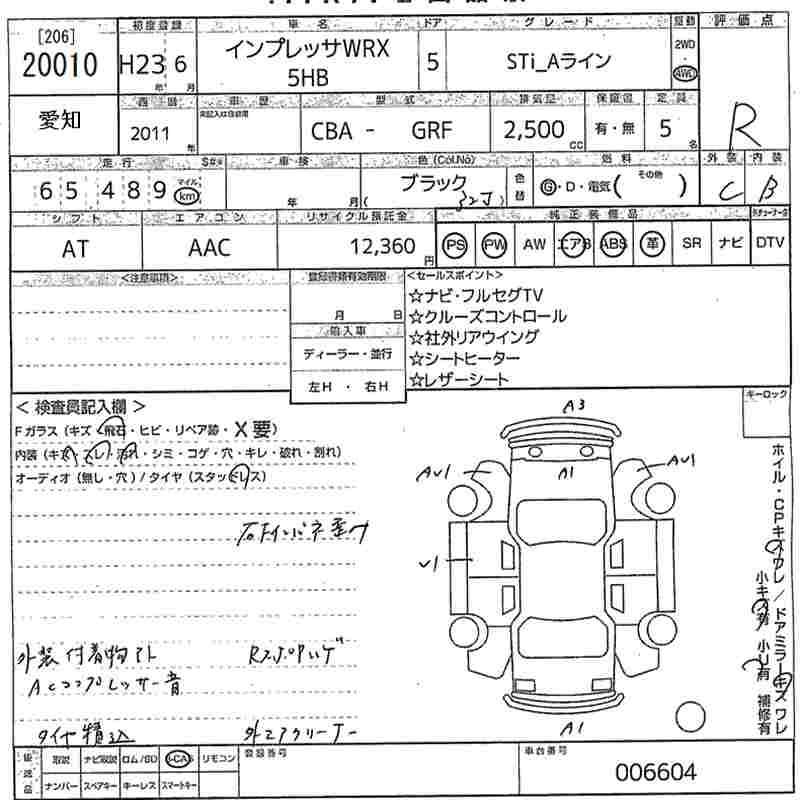 [206]
20010
初度登録
H23 6
年 月
車名
インプレッサWRX
5HB
ドア
5
グレード
STi_Aライン
駆動
2WD
AWD
評価点
R
愛知
西暦
2011
年
車歴
型式
CBA - GRF
排気量
2,500
cc
保証書
有・無
定員
5
名
走行
S#※
65489
マイル
km
車検
年 月
色(Col.No)
ブラック
( 32J )
色替
燃料
G・D・電気( その他 )
外装
C
内装
B
シフト
AT
エアコン
AAC
リサイクル預託金
12,360
円
純正装備品
PS PW AW エアB ABS 革 SR ナビ DTV
<注意事項>
登録書類有効期限
月 日
輸入車
ディーラー・並行
左H ・ 右H
<セールスポイント>
☆ナビ・フルセグTV
☆クルーズコントロール
☆社外リアウイング
☆シートヒーター
☆レザーシート
キーロック
< 検査員記入欄 >
Fガラス (キズ・飛石・ヒビ・リペア跡・X要)
内装 (キズ・スレ・汚れ・シミ・コゲ・穴・キレ・破れ・割れ)
オーディオ (無し・穴) / タイヤ (スタッドレス)
外装付着物アト
ACコンプレッサー音
タイヤ積込
外エアクリーナー
A3
A1
AU1
AU1
U1
A1
ホイル・CPキズワレ/ドアミラーキズワレ
小キズ有 小U有 補修有
取説 ナビ取説 ロム/SD B-CAS リモコン
ナンバー スペアキー キーレス スマートキー
登録番号
車台番号
006604